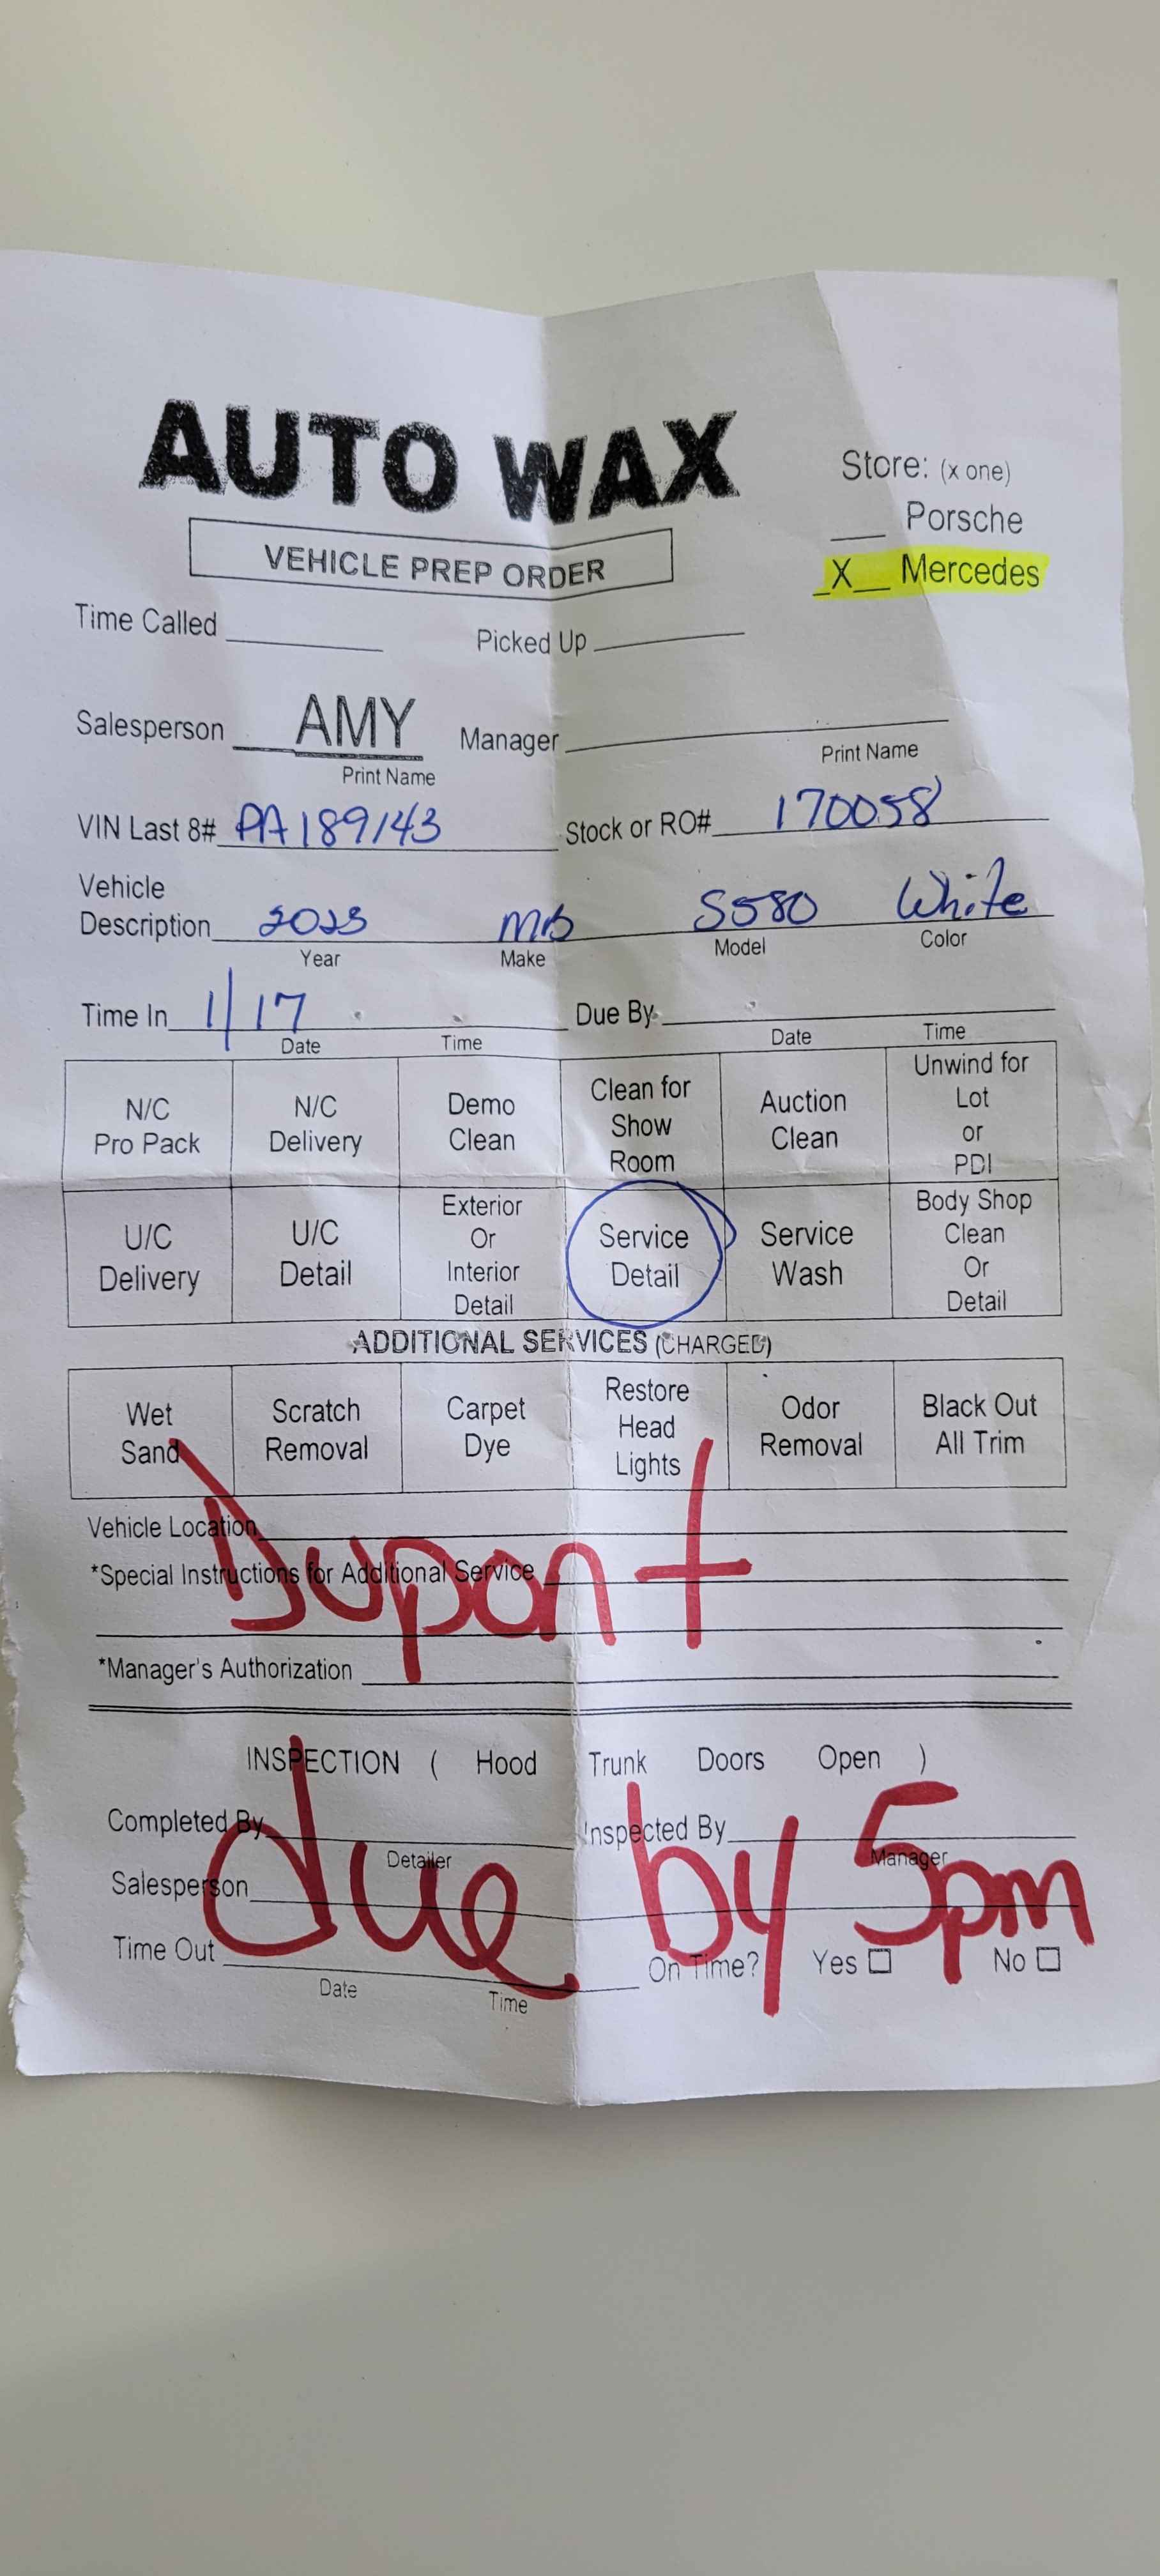 AUTO WAX
Store: (x one)
___ Porsche
VEHICLE PREP ORDER
_X__ Mercedes
Time Called
Picked Up
Salesperson AMY Manager
Print Name
Print Name
VIN Last 8# PA189143 Stock or RO# 170058
Vehicle
Description 2023 MB S580 White
Year Make Model Color
Time In 1/17 Due By
Date Time Date Time
N/C Pro Pack
N/C Delivery
Demo Clean
Clean for Show Room
Auction Clean
Unwind for Lot or PDI
U/C Delivery
U/C Detail
Exterior Or Interior Detail
Service Detail
Service Wash
Body Shop Clean Or Detail
ADDITIONAL SERVICES (CHARGED)
Wet Sand
Scratch Removal
Carpet Dye
Restore Head Lights
Odor Removal
Black Out All Trim
Vehicle Location
*Special Instructions for Additional Service
Dupont
*Manager's Authorization
INSPECTION ( Hood Trunk Doors Open )
Completed By Inspected By
Detailer Manager
Salesperson
due by 5pm
Time Out On Time? Yes ☐ No ☐
Date Time